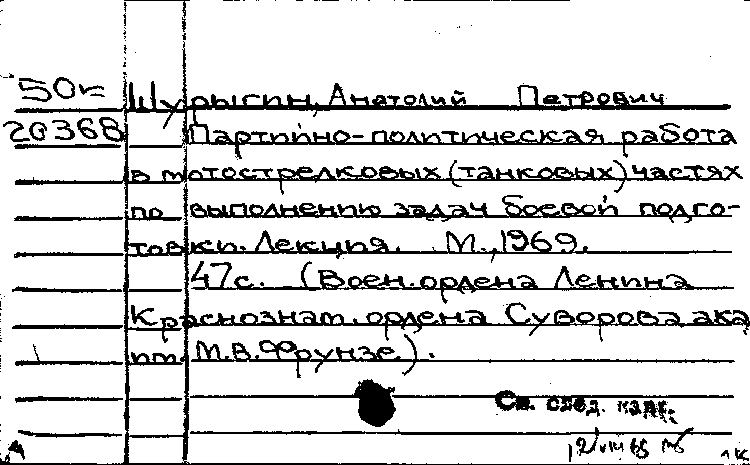 50к Шурыгин, Анатолий Петрович
20368 Партийно-политическая работа
в мотострелковых (танковых) частях
по выполнению задач боевой подго-
товки. Лекция. М., 1969.
47с. (Воен. ордена Ленина
Краснознам. ордена Суворова ака
им. М.В. Фрунзе).
См. след. карт.